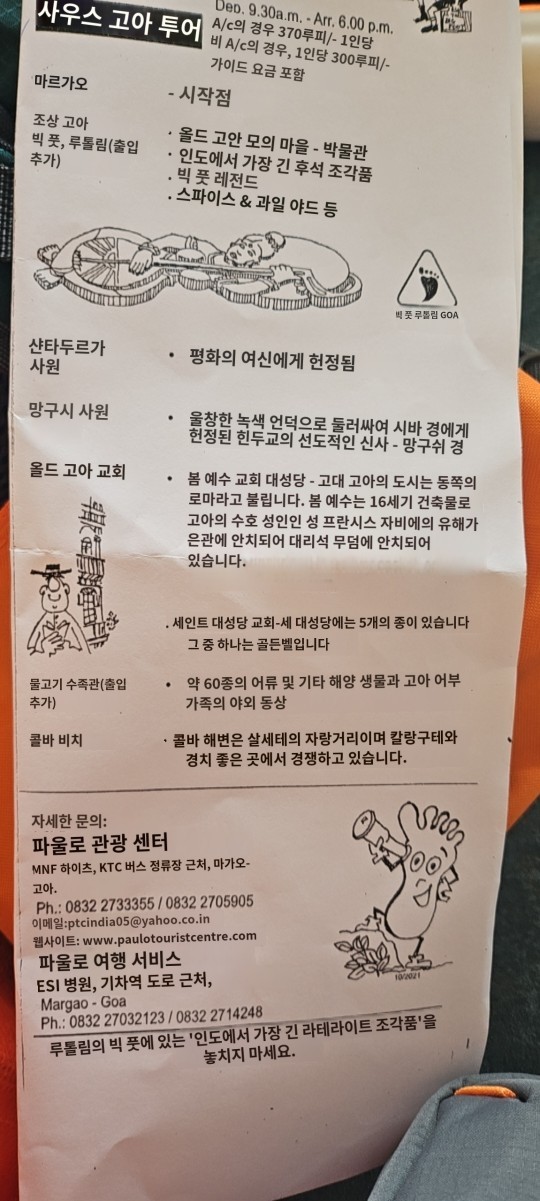 사우스 고아 투어
Dep. 9.30a.m. - Arr. 6.00 p.m.
A/c의 경우 370루피/- 1인당
비 A/c의 경우, 1인당 300루피/-
가이드 요금 포함
마르가오
- 시작점
조상 고아
빅 풋, 루톨림(출입
추가)
· 올드 고안 모의 마을 - 박물관
· 인도에서 가장 긴 후석 조각품
· 빅 풋 레전드
· 스파이스 & 과일 야드 등
빅 풋 루톨림 GOA
샨타두르가
사원
• 평화의 여신에게 헌정됨
망구시 사원
• 울창한 녹색 언덕으로 둘러싸여 시바 경에게
헌정된 힌두교의 선도적인 신사 - 망구쉬 경
올드 고아 교회
• 봄 예수 교회 대성당 - 고대 고아의 도시는 동쪽의
로마라고 불립니다. 봄 예수는 16세기 건축물로
고아의 수호 성인인 성 프란시스 자비에의 유해가
은관에 안치되어 대리석 무덤에 안치되어
있습니다.
. 세인트 대성당 교회-세 대성당에는 5개의 종이 있습니다
그 중 하나는 골든벨입니다
물고기 수족관(출입
추가)
• 약 60종의 어류 및 기타 해양 생물과 고아 어부
가족의 야외 동상
콜바 비치
· 콜바 해변은 살세테의 자랑거리이며 칼랑구테와
경치 좋은 곳에서 경쟁하고 있습니다.
자세한 문의:
파울로 관광 센터
MNF 하이츠, KTC 버스 정류장 근처, 마가오-
고아.
Ph.: 0832 2733355 / 0832 2705905
이메일:ptcindia05@yahoo.co.in
웹사이트: www.paulotouristcentre.com
파울로 여행 서비스
ESI 병원, 기차역 도로 근처,
Margao - Goa
Ph.: 0832 27032123 / 0832 2714248
10/2021
루톨림의 빅 풋에 있는 '인도에서 가장 긴 라테라이트 조각품'을
놓치지 마세요.